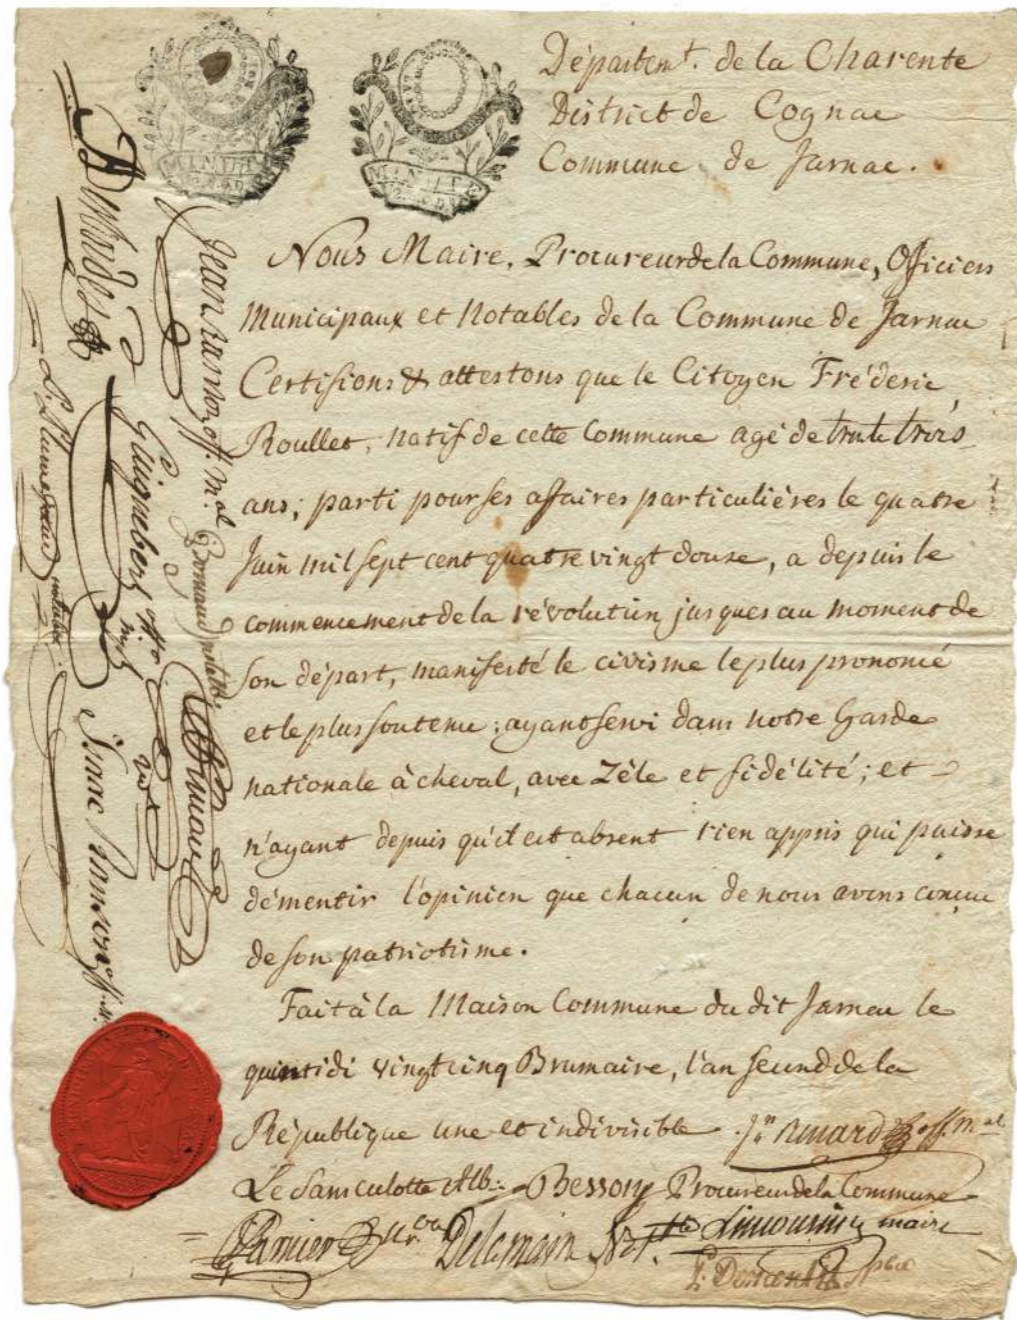 Départem.t de la Charente
District de Cognac
Commune de Jarnac.
MINUTE
MINUTE
Nous Maire, Procureur de la Commune, Officiers
Municipaux et Notables de la Commune de Jarnac
Certifions & attestons que le Citoyen Fréderic
Roullet, natif de cette Commune agé de trente trois
ans; parti pour ses affaires particulières le quatre
Juin mil sept cent quatre vingt douze, a depuis le
commencement de la révolution jusques au moment de
son départ, manifesté le civisme le plus prononcé
et le plus soutenu; ayant servi dans notre Garde
nationale à cheval, avec Zèle et fidélité; et
n'ayant depuis qu'il est absent rien appris qui puisse
démentir l'opinion que chacun de nous avons conçue
de son patriotisme.
Fait à la Maison Commune du dit Jarnac le
quintidi vingt cinq Brumaire, l'an second de la
République une et indivisible. off. m.al
Le Sanculotte Alb: Besson Procureur de la Commune
Delamain Not. Limouzin maire
Jean Ranson off. m.al
notable
Guignebert offr.
notable
Isaac Ranson off. m.